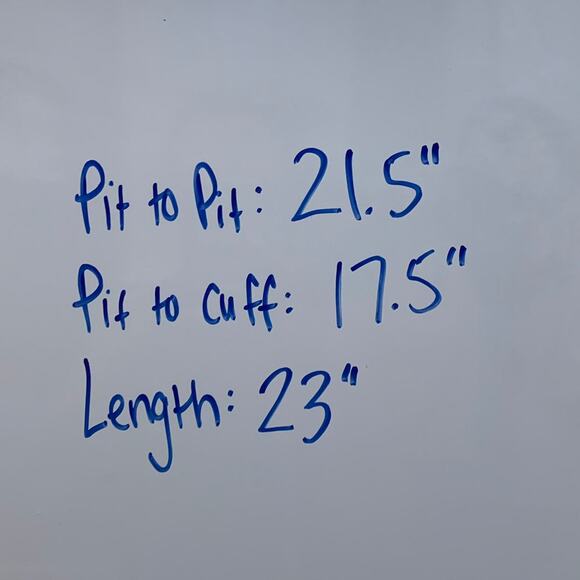 Pit to Pit: 21.5"
Pit to Cuff: 17.5"
Length: 23"